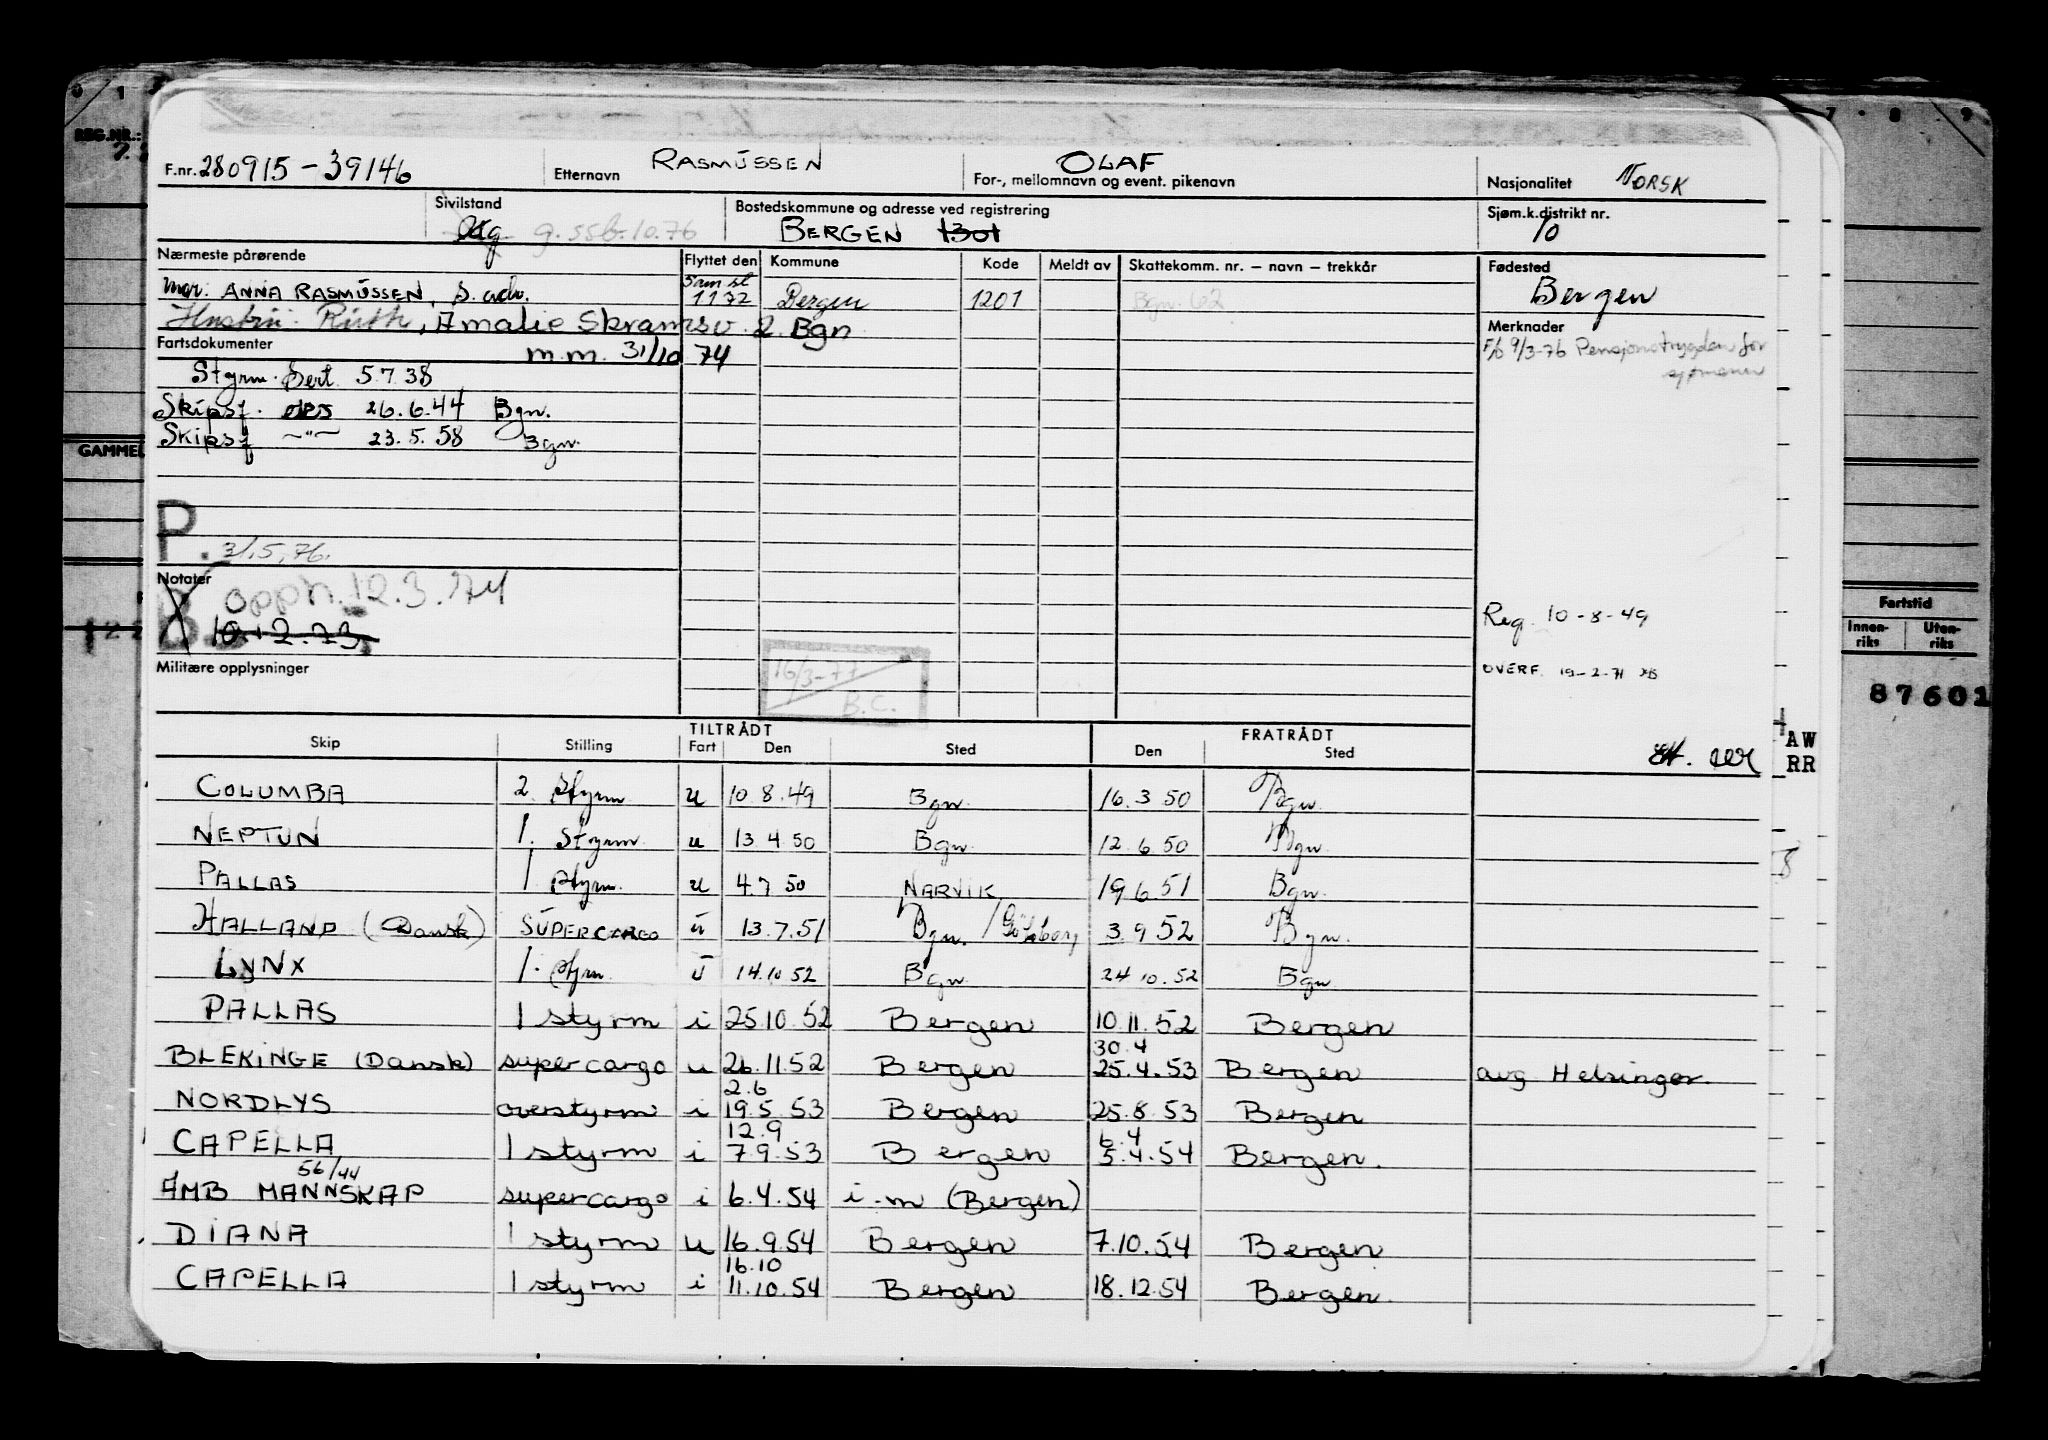 0 1
7 · 8 9
REG.NR.:
F.nr. 280915-39146 Etternavn RASMUSSEN OLAF For-, mellomnavn og event. pikenavn Nasjonalitet NORSK
Sivilstand Ug g. 10.76 Bostedskommune og adresse ved registrering BERGEN 1301 Sjøm.k.distrikt nr. 10
Nærmeste pårørende Flyttet den Kommune Kode Meldt av Skattekomm. nr. — navn — trekkår Fødested
Mor: ANNA RASMUSSEN, s. adr. 1172 Bergen 1201 Bgn. 62 Bergen
Hustru: Ruth, Amalie Skramsv. 2 Bgn Merknader
Fartsdokumenter m.m. 31/10 74 F/b 9/3-76 Pensjonstrygden for sjømenn
Styrm. Sert. 5.7.38
Skipsf. 26.6.44 Bgn.
GAMMEL Skipsf —"— 23.5.58 Bgn.
P. 31.5.76.
Notater opph. 12.3.74
B. 10.12.73.
Reg. 10-8-49
Fartstid
Innen-riks Uten-riks
Militære opplysninger
16/3-77 B.C.
OVERF. 19-2-71
87601
TILTRÅDT FRATRÅDT
Skip Stilling Fart Den Sted Den Sted
AW
RR
COLUMBA 2. Styrm. u 10.8.49 Bgn. 16.3.50 Bgn.
NEPTUN 1. Styrm. u 13.4.50 Bgn. 12.6.50 Bgn.
PALLAS 1 Styrm. u 4.7.50 NARVIK 19.6.51 Bgn.
HALLAND (Dansk) SUPERCARGO u 13.7.51 Bgn. / Göteborg 3.9.52 Bgn.
LYNX 1. Styrm. u 14.10.52 Bgn 24.10.52 Bgn
PALLAS 1 styrm i 25.10.52 Bergen 10.11.52 Bergen
30.4
BLEKINGE (Dansk) supercargo u 26.11.52 Bergen 25.4.53 Bergen avg Helsingør.
2.6
NORDLYS overstyrm i 19.5.53 Bergen 25.8.53 Bergen
12.9 6.4
CAPELLA 1 styrm i 7.9.53 Bergen 5.4.54 Bergen.
56/44
AMB MANNSKAP supercargo i 6.4.54 i.m (Bergen)
DIANA 1 styrm u 16.9.54 Bergen 7.10.54 Bergen
16.10
CAPELLA 1 styrm i 11.10.54 Bergen 18.12.54 Bergen.